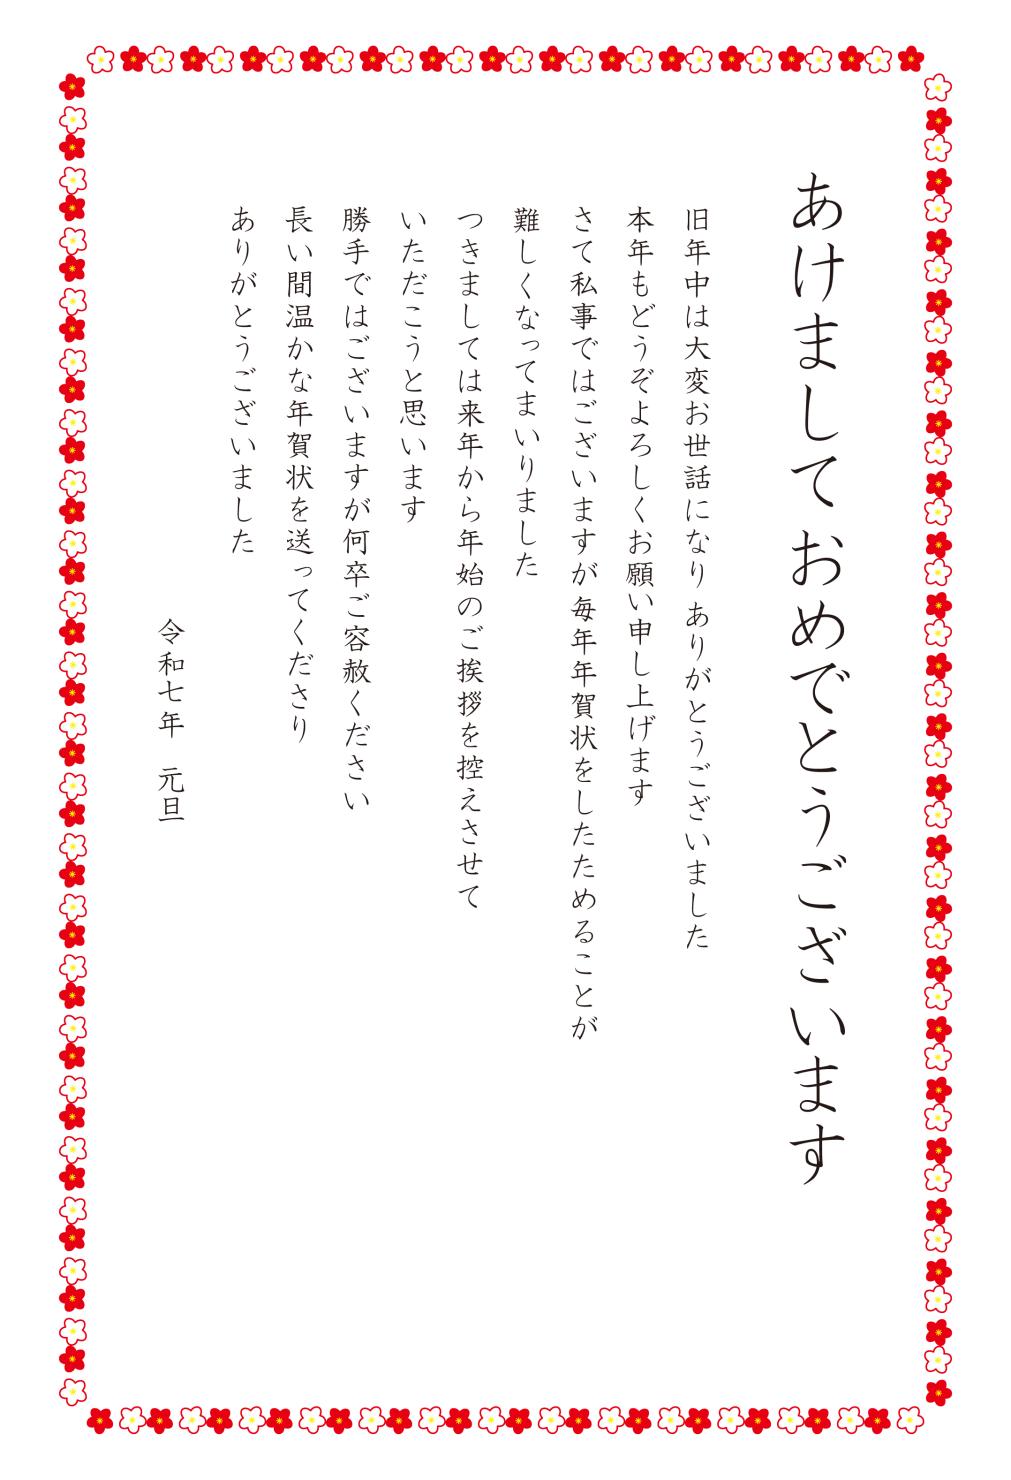 あけまして おめでとうございます
旧年中は大変お世話になり ありがとうございました
本年もどうぞよろしくお願い申し上げます
さて私事ではございますが 毎年年賀状をしたためることが
難しくなってまいりました
つきましては来年から年始のご挨拶を控えさせて
いただこうと思います
勝手ではございますが何卒ご容赦ください
長い間温かな年賀状を送ってくださり
ありがとうございました
令和七年　元旦